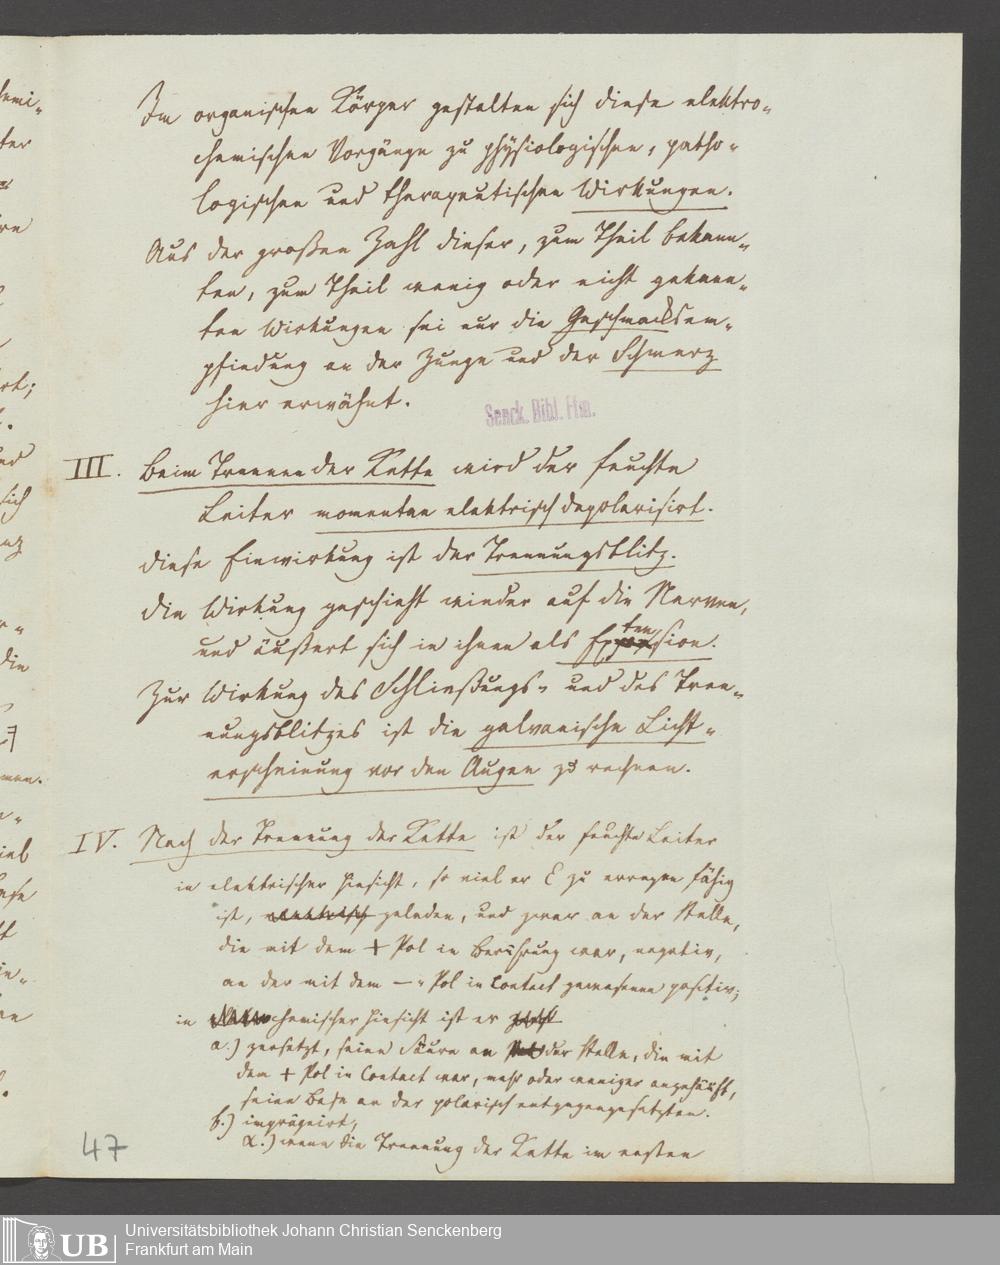 Im organischen Körper gestalten sich diese elektro-
chemischen Vorgänge zu physiologischen, patho-
logischen und therapeutischen Wirkungen.
Aus der großen Zahl dieser, zum Theil bekann-
ten, zum Theil wenig oder nicht gekann-
ten Wirkungen sei nur die Geschmacksem-
pfindung an der Zunge und der Schmerz
hier erwähnt.
Senck. Bibl. Ffm.
III. Beim Trennen der Kette wird der feuchte
Leiter momentan elektrisch depolarisirt.
Diese Einwirkung ist der Trennungsblitz.
Die Wirkung geschieht wieder auf die Nerven,
und äußert sich in ihnen als Extension.
Zur Wirkung des Schließungs- und des Tren-
nungsblitzes ist die galvanische Licht-
erscheinung vor den Augen zu rechnen.
IV. Nach der Trennung der Kette ist der feuchte Leiter
in elektrischer Hinsicht, so viel er E zu erregen fähig
ist, elektrisch geladen, und zwar an der Stelle,
die mit dem + Pol in Berührung war, negativ,
an der mit dem — Pol in Contact gewesenen positiv;
in chemischer Hinsicht ist er
a.) zersetzt, seine Säure an der Stelle, die mit
dem + Pol in Contact war, mehr oder weniger angehäuft,
seine Base an der polarisch entgegengesetzten.
b.) imprägnirt,
α.) wenn die Trennung der Kette im ersten
47
UB
Universitätsbibliothek Johann Christian Senckenberg
Frankfurt am Main